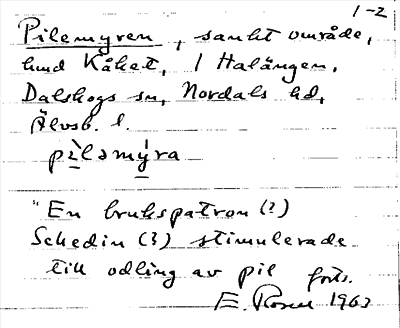 1-2
Pilemyren, sankt område,
hund Kåket, i Halängen,
Dalskogs sn, Nordals hd,
Älvsb. l.
pìləmýra
"En brukspatron (?)
Schedin (?) stimulerade
till odling av pil forts.
E. Rosen 1963